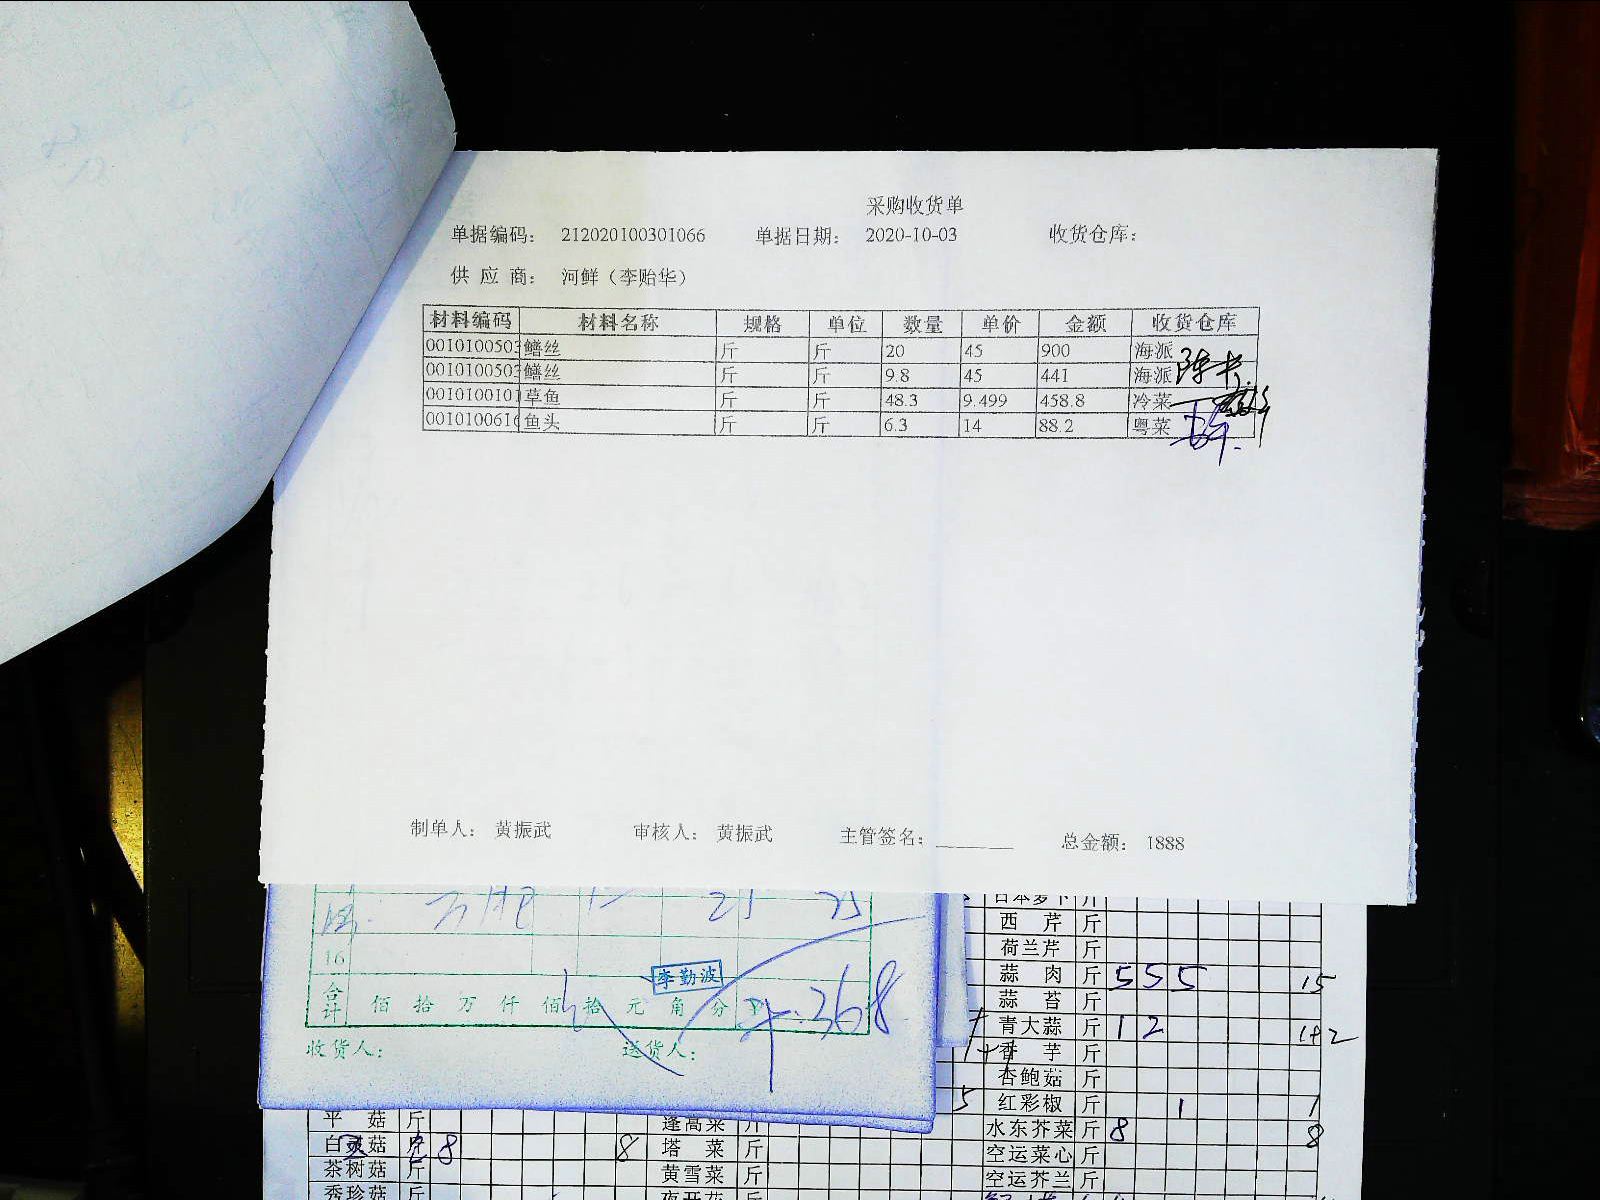 采购收货单
单据编码： 212020100301066 单据日期： 2020-10-03 收货仓库：
供 应 商： 河鲜（李贻华）
材料编码 材料名称 规格 单位 数量 单价 金额 收货仓库
001010050 鳝丝 斤 斤 20 45 900 海派
001010050 鳝丝 斤 斤 9.8 45 441 海派
001010010 草鱼 斤 斤 48.3 9.499 458.8 冷菜
001010061 鱼头 斤 斤 6.3 14 88.2 粤菜
制单人： 黄振武 审核人： 黄振武 主管签名： 总金额： 1888
16
李勤波
合计 佰 拾 万 仟 佰 拾 元 角 分 368
收货人： 送货人：
日本萝卜 斤
西 芹 斤
荷兰芹 斤
蒜 肉 斤 5 5 5 15
蒜 苔 斤
青大蒜 斤 1 2 1+2
香 芋 斤
杏鲍菇 斤
红彩椒 斤 1 1
水东芥菜 斤 8 8
空运菜心 斤
空运芥兰 斤
平 菇 斤 蓬蒿菜 斤
白灵菇 8 8 塔 菜 斤
茶树菇 斤 黄雪菜 斤
秀珍菇 斤